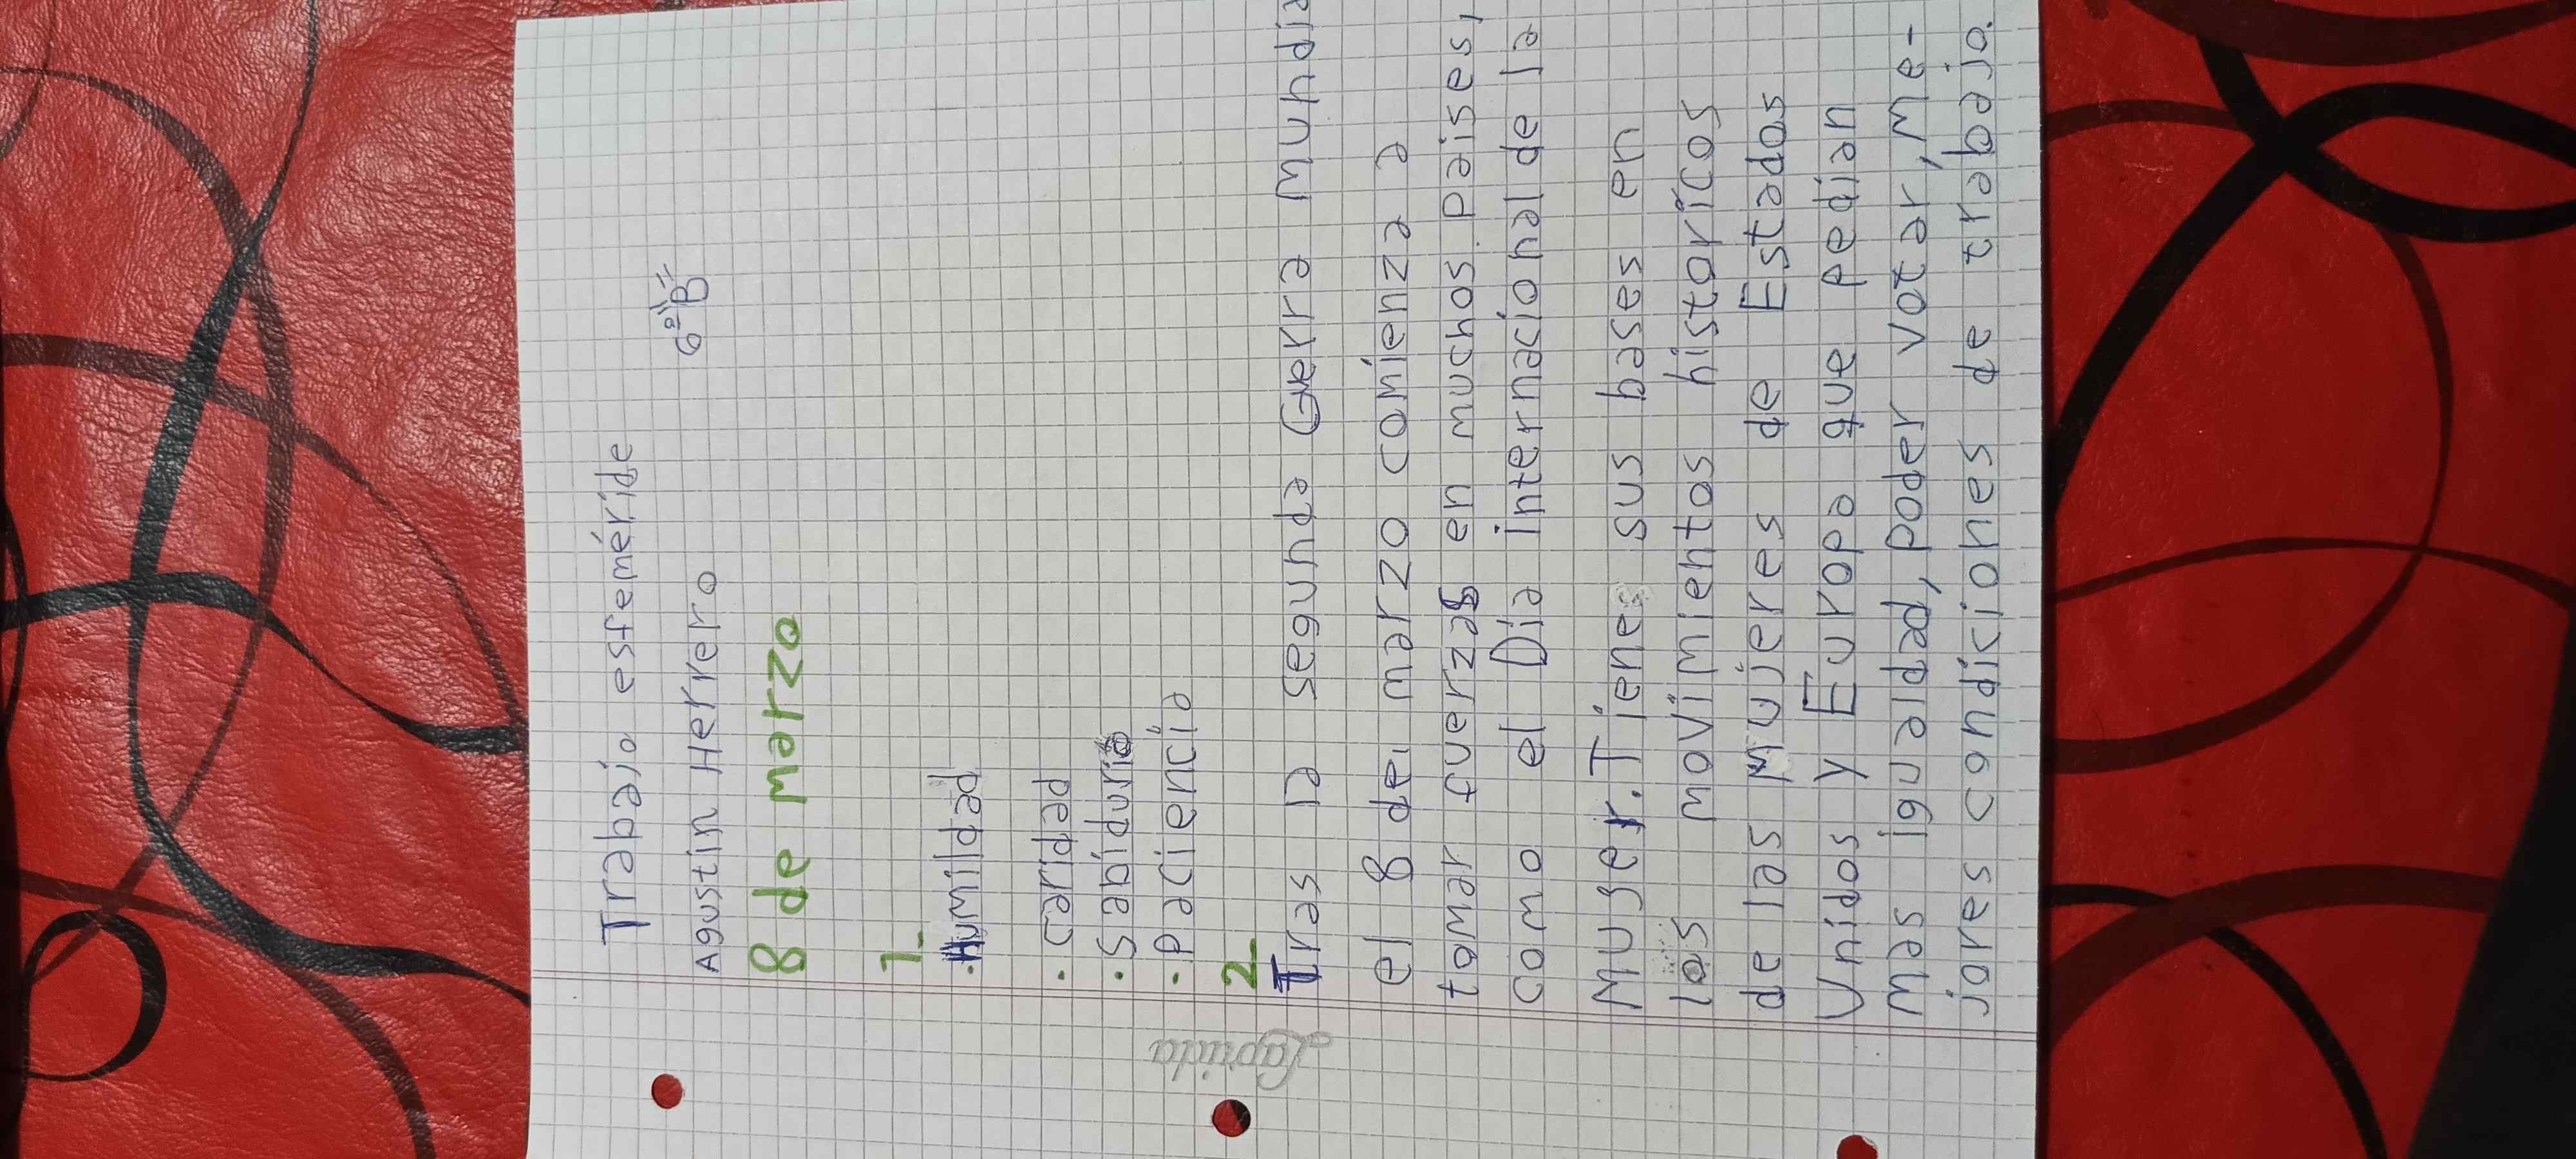 Trabajo esfeméride
Agustín Herrero 6º "B"
8 de marzo
1_
. Humildad
. caridad
. Sabiduria
. paciencia
2_
Tras la segunda Gerra mundi
el 8 de marzo comienza a
tomar fuerzas en muchos paises,
como el Día internacional de la
Muger. Tiene sus bases en
los movimientos historicos
de las mujeres de Estados
Unidos y Europa que pedian
mas igualdad, poder votar, me-
jores condiciones de trabajo.
Laprida